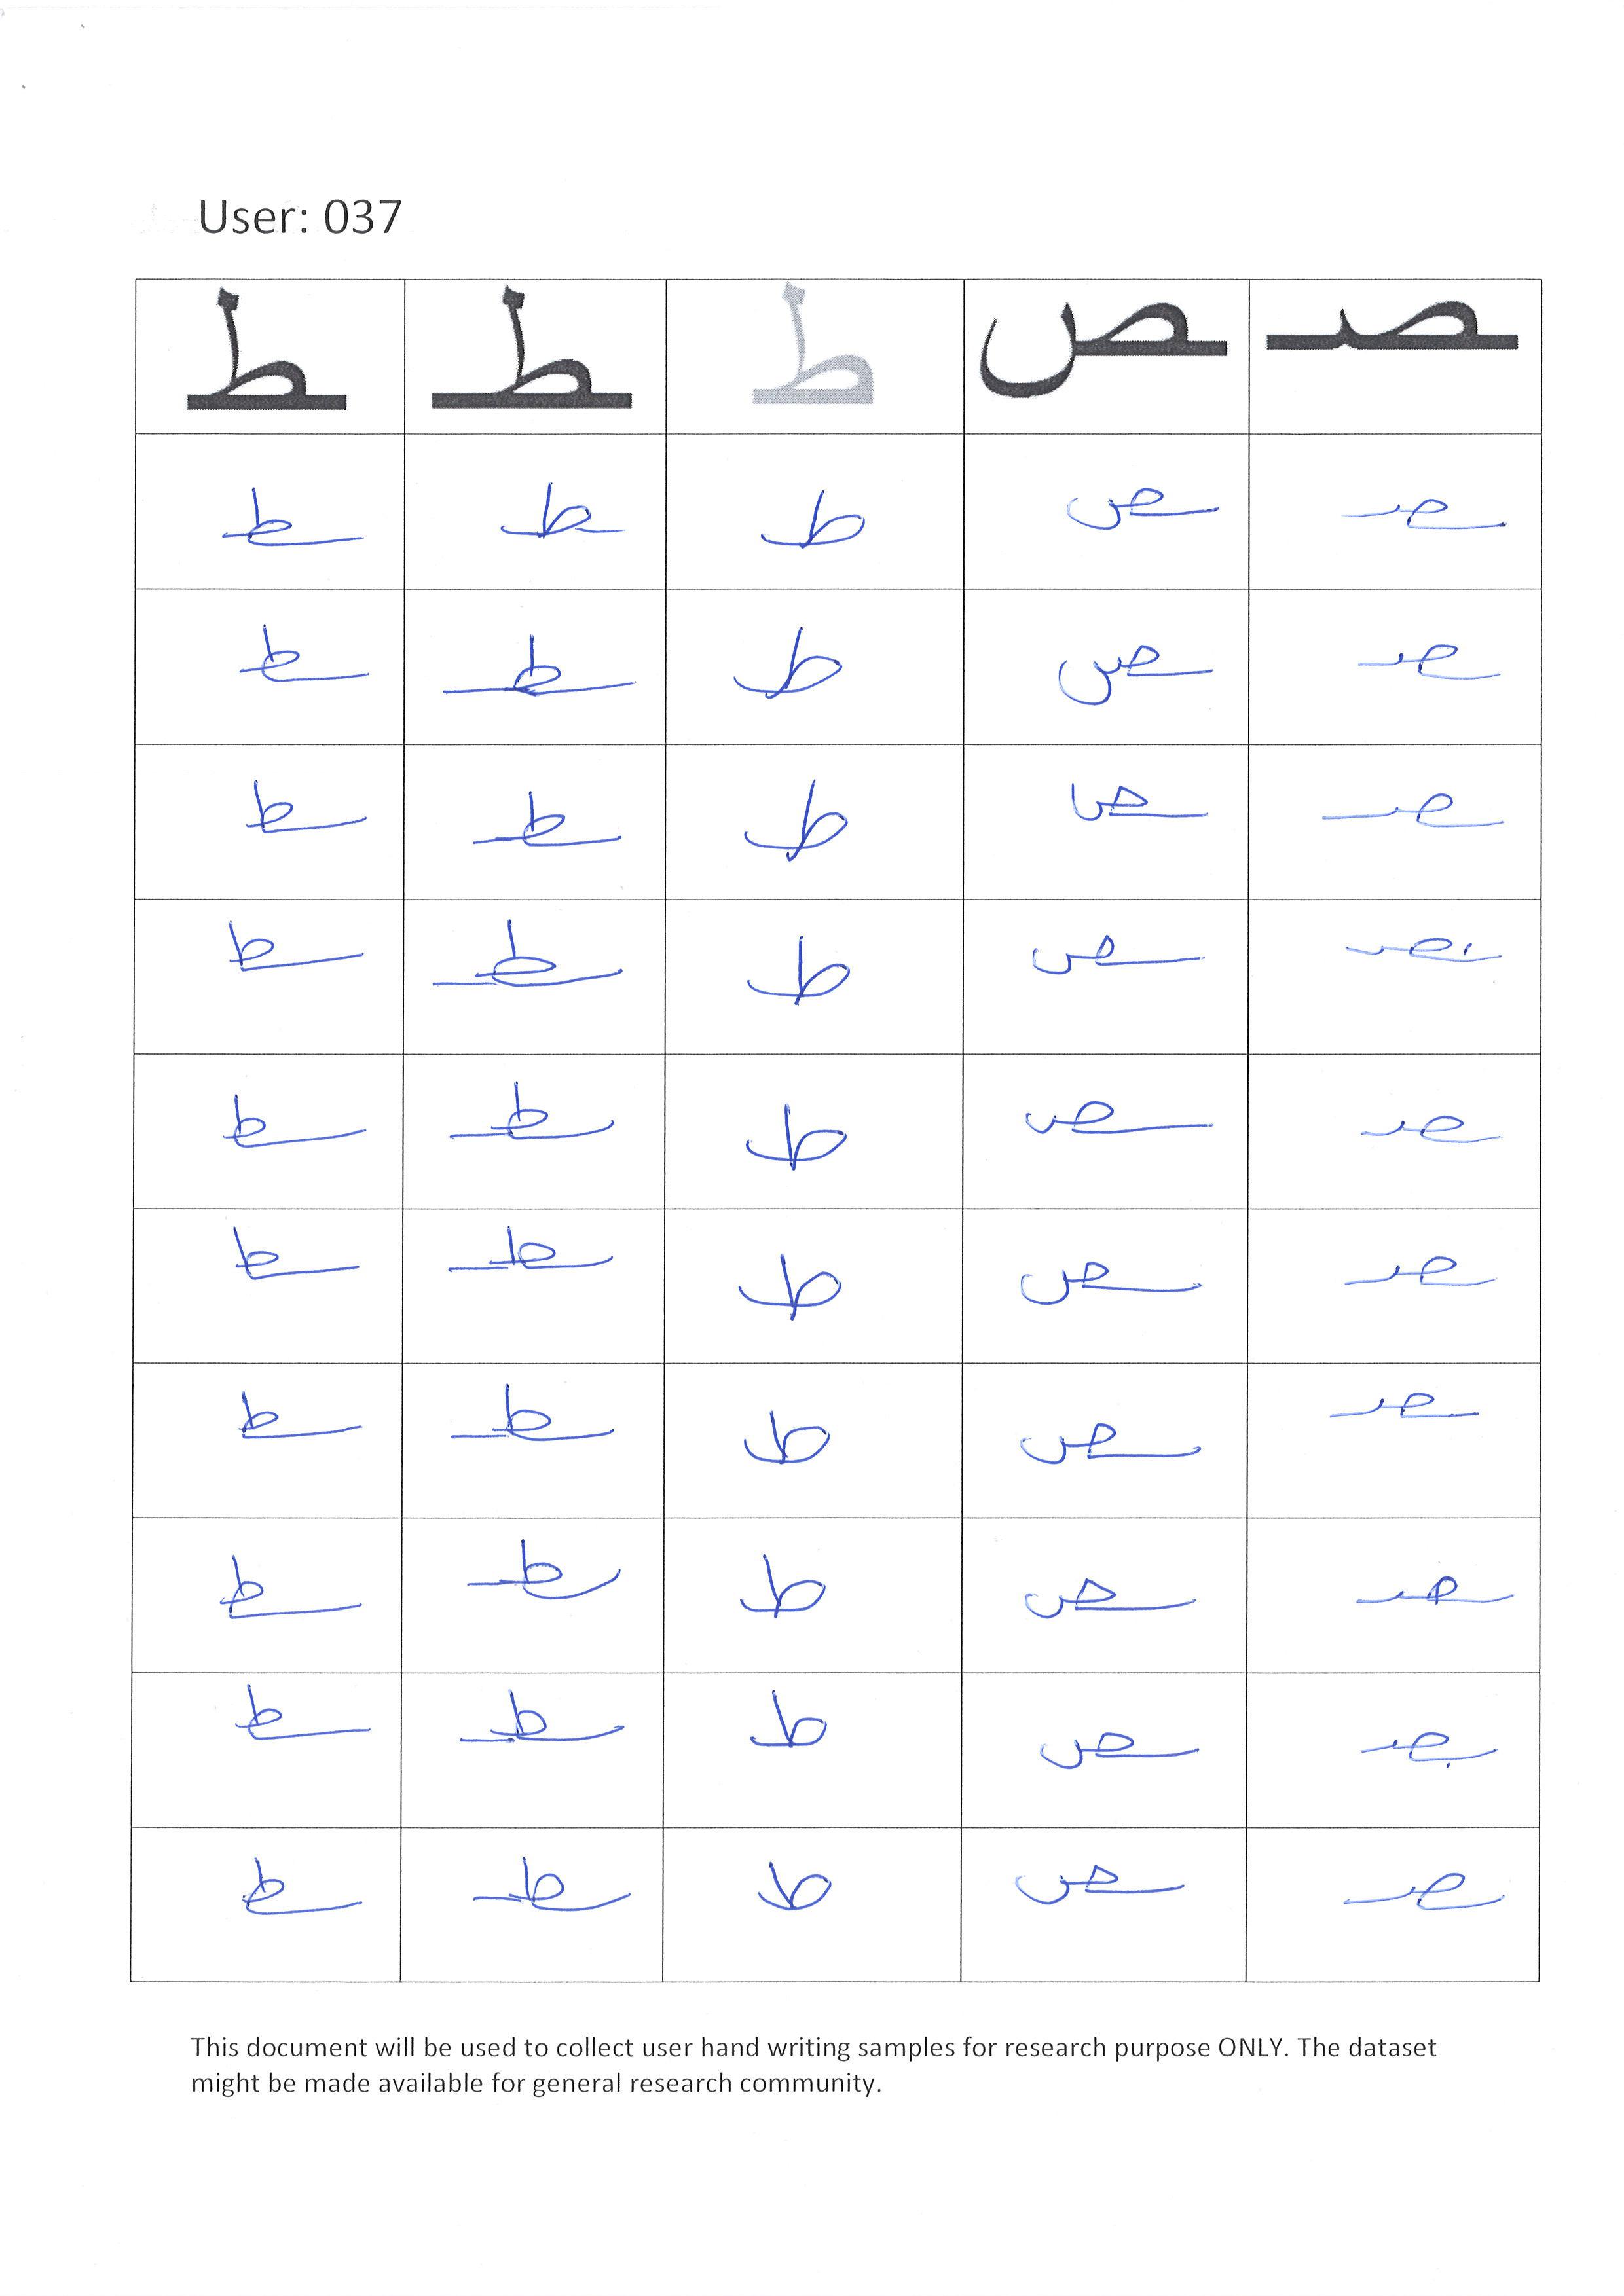 User: 037
ـط ـطـ ط ـص ـصـ
ـط ـطـ ط ـص ـصـ
ـط ـطـ ط ـص ـصـ
ـط ـطـ ط ـص ـصـ
ـط ـطـ ط ـص ـصـ
ـط ـطـ ط ـص ـصـ
ـط ـطـ ط ـص ـصـ
ـط ـطـ ط ـص ـصـ
ـط ـطـ ط ـص ـصـ
ـط ـطـ ط ـص ـصـ
ـط ـطـ ط ـص ـصـ
This document will be used to collect user hand writing samples for research purpose ONLY. The dataset
might be made available for general research community.